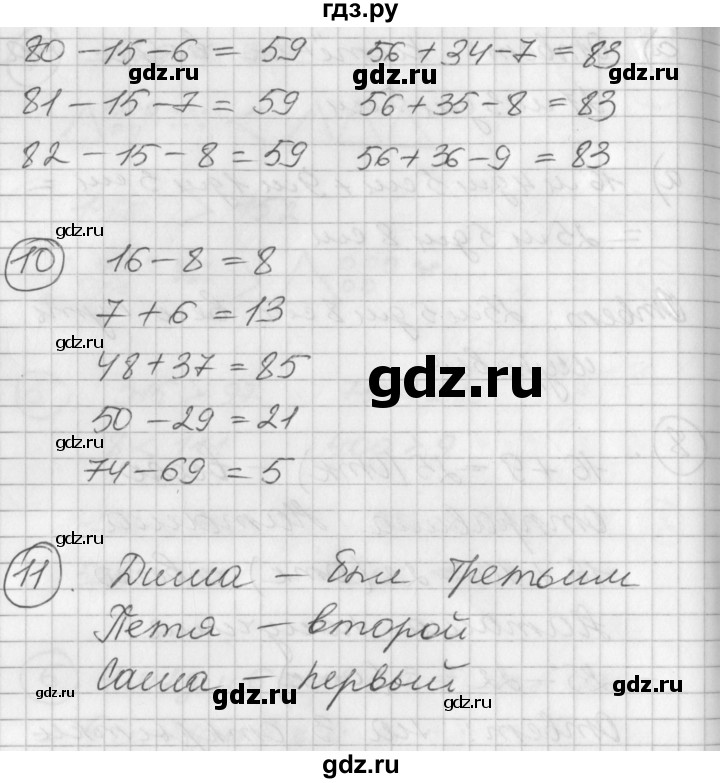 гдз.ру
80 - 15 - 6 = 59 56 + 34 - 7 = 83
gdz.ru gdz.ru
81 - 15 - 7 = 59 56 + 35 - 8 = 83
82 - 15 - 8 = 59 56 + 36 - 9 = 83
gdz.ru
10 16 - 8 = 8
7 + 6 = 13
gdz.ru
48 + 37 = 85
gdz.ru
50 - 29 = 21
gdz.ru
74 - 69 = 5
gdz.ru
11. Дима - был третьим
Петя - второй
Саша - первый
gdz.ru gdz.ru gdz.ru
gdz.ru